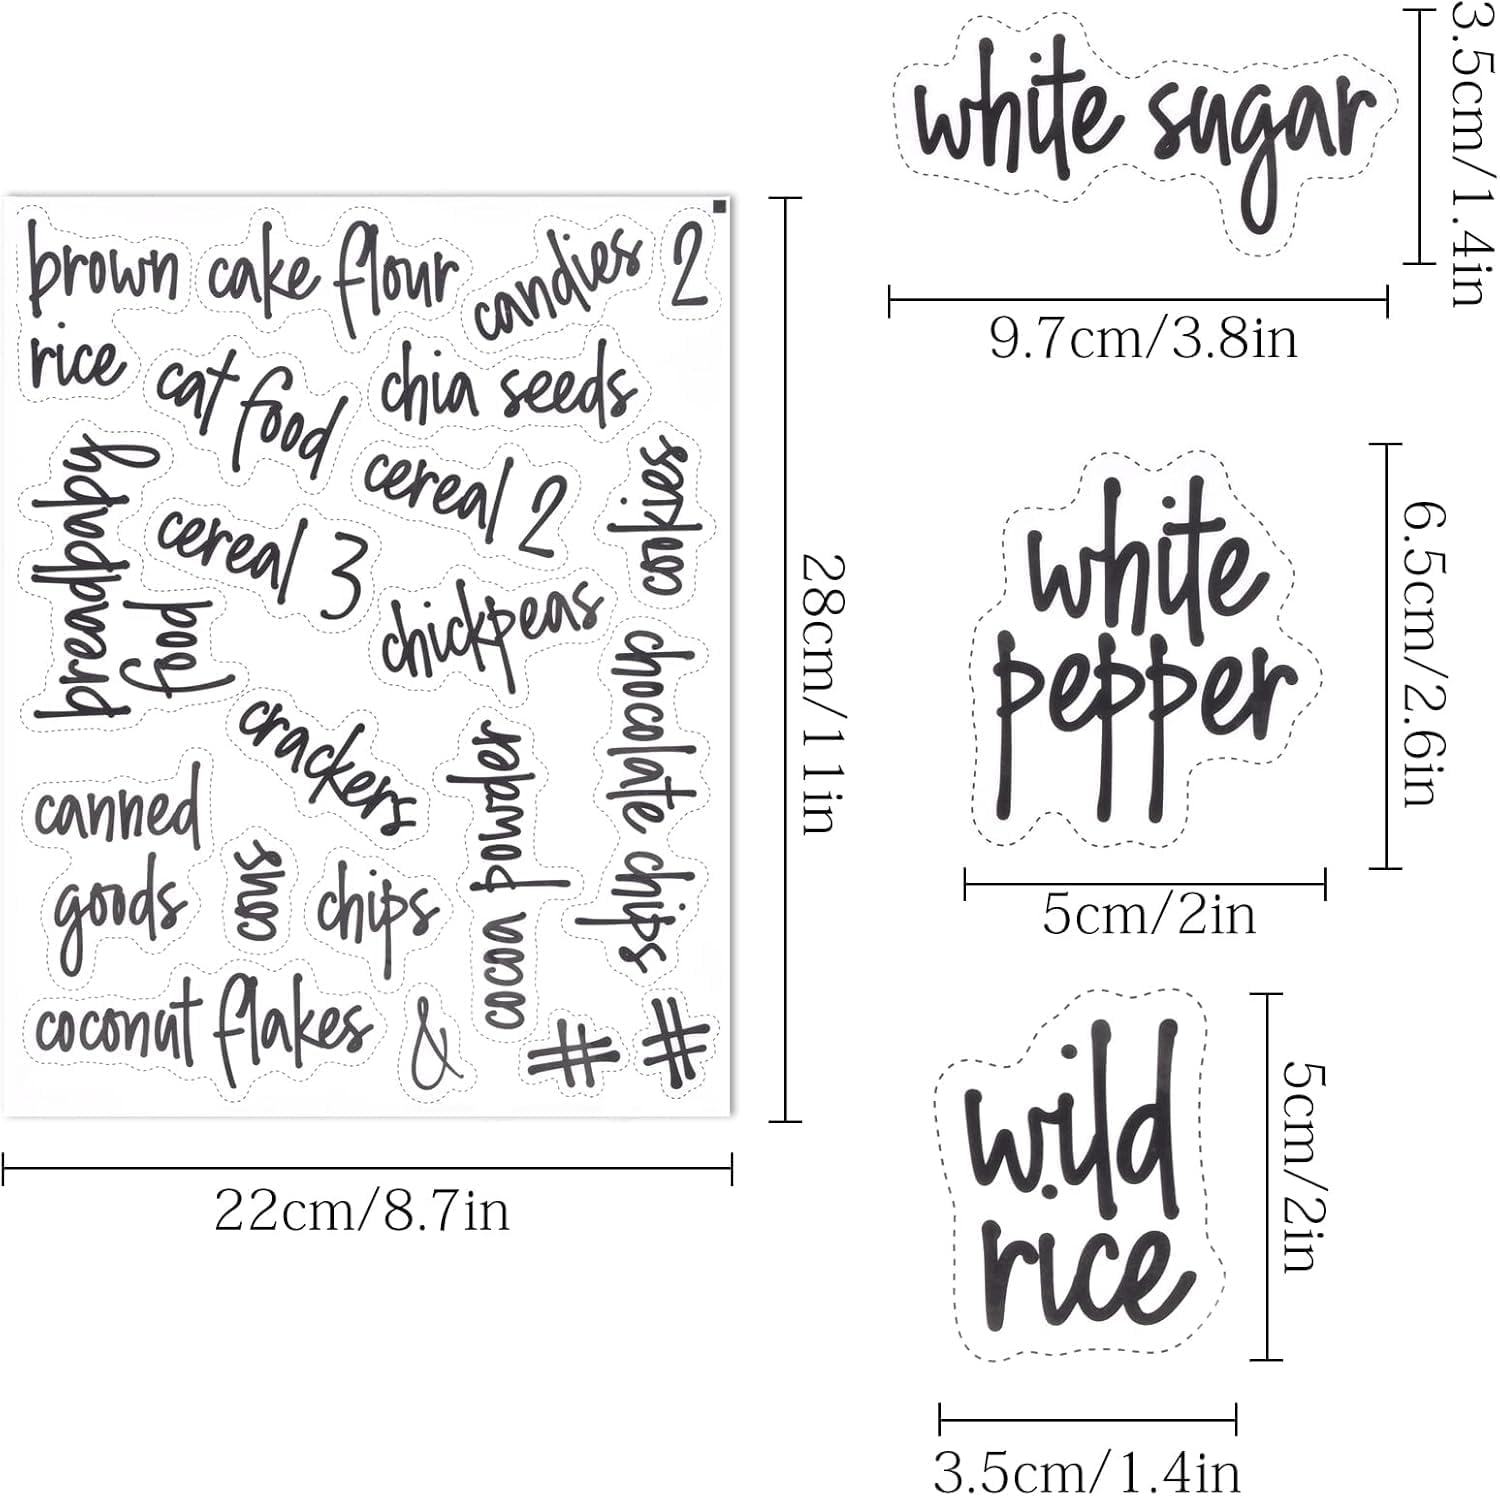 brown
rice
cake flour
candies 2
cat food
chia seeds
breadbaby
food
cereal 3
cereal 2
cookies
chickpeas
chocolate chips
crackers
canned
goods
cous
chips
cocoa powder
coconut flakes
&
#
#
28cm/11in
22cm/8.7in
white sugar
3.5cm/1.4in
9.7cm/3.8in
white
pepper
6.5cm/2.6in
5cm/2in
wild
rice
5cm/2in
3.5cm/1.4in